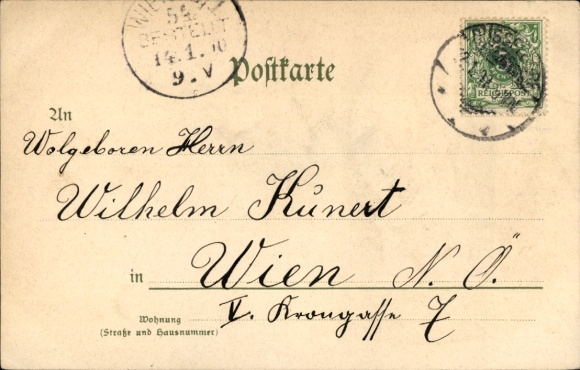 54
BESTELLT
14.1.00
9.V
Postkarte
REICHSPOST
An
Wolgeboren Herrn
Wilhelm Kúnert
in Wien N. Ö.
Wohnung
(Straße und Hausnummer)
V. Krongasse 7